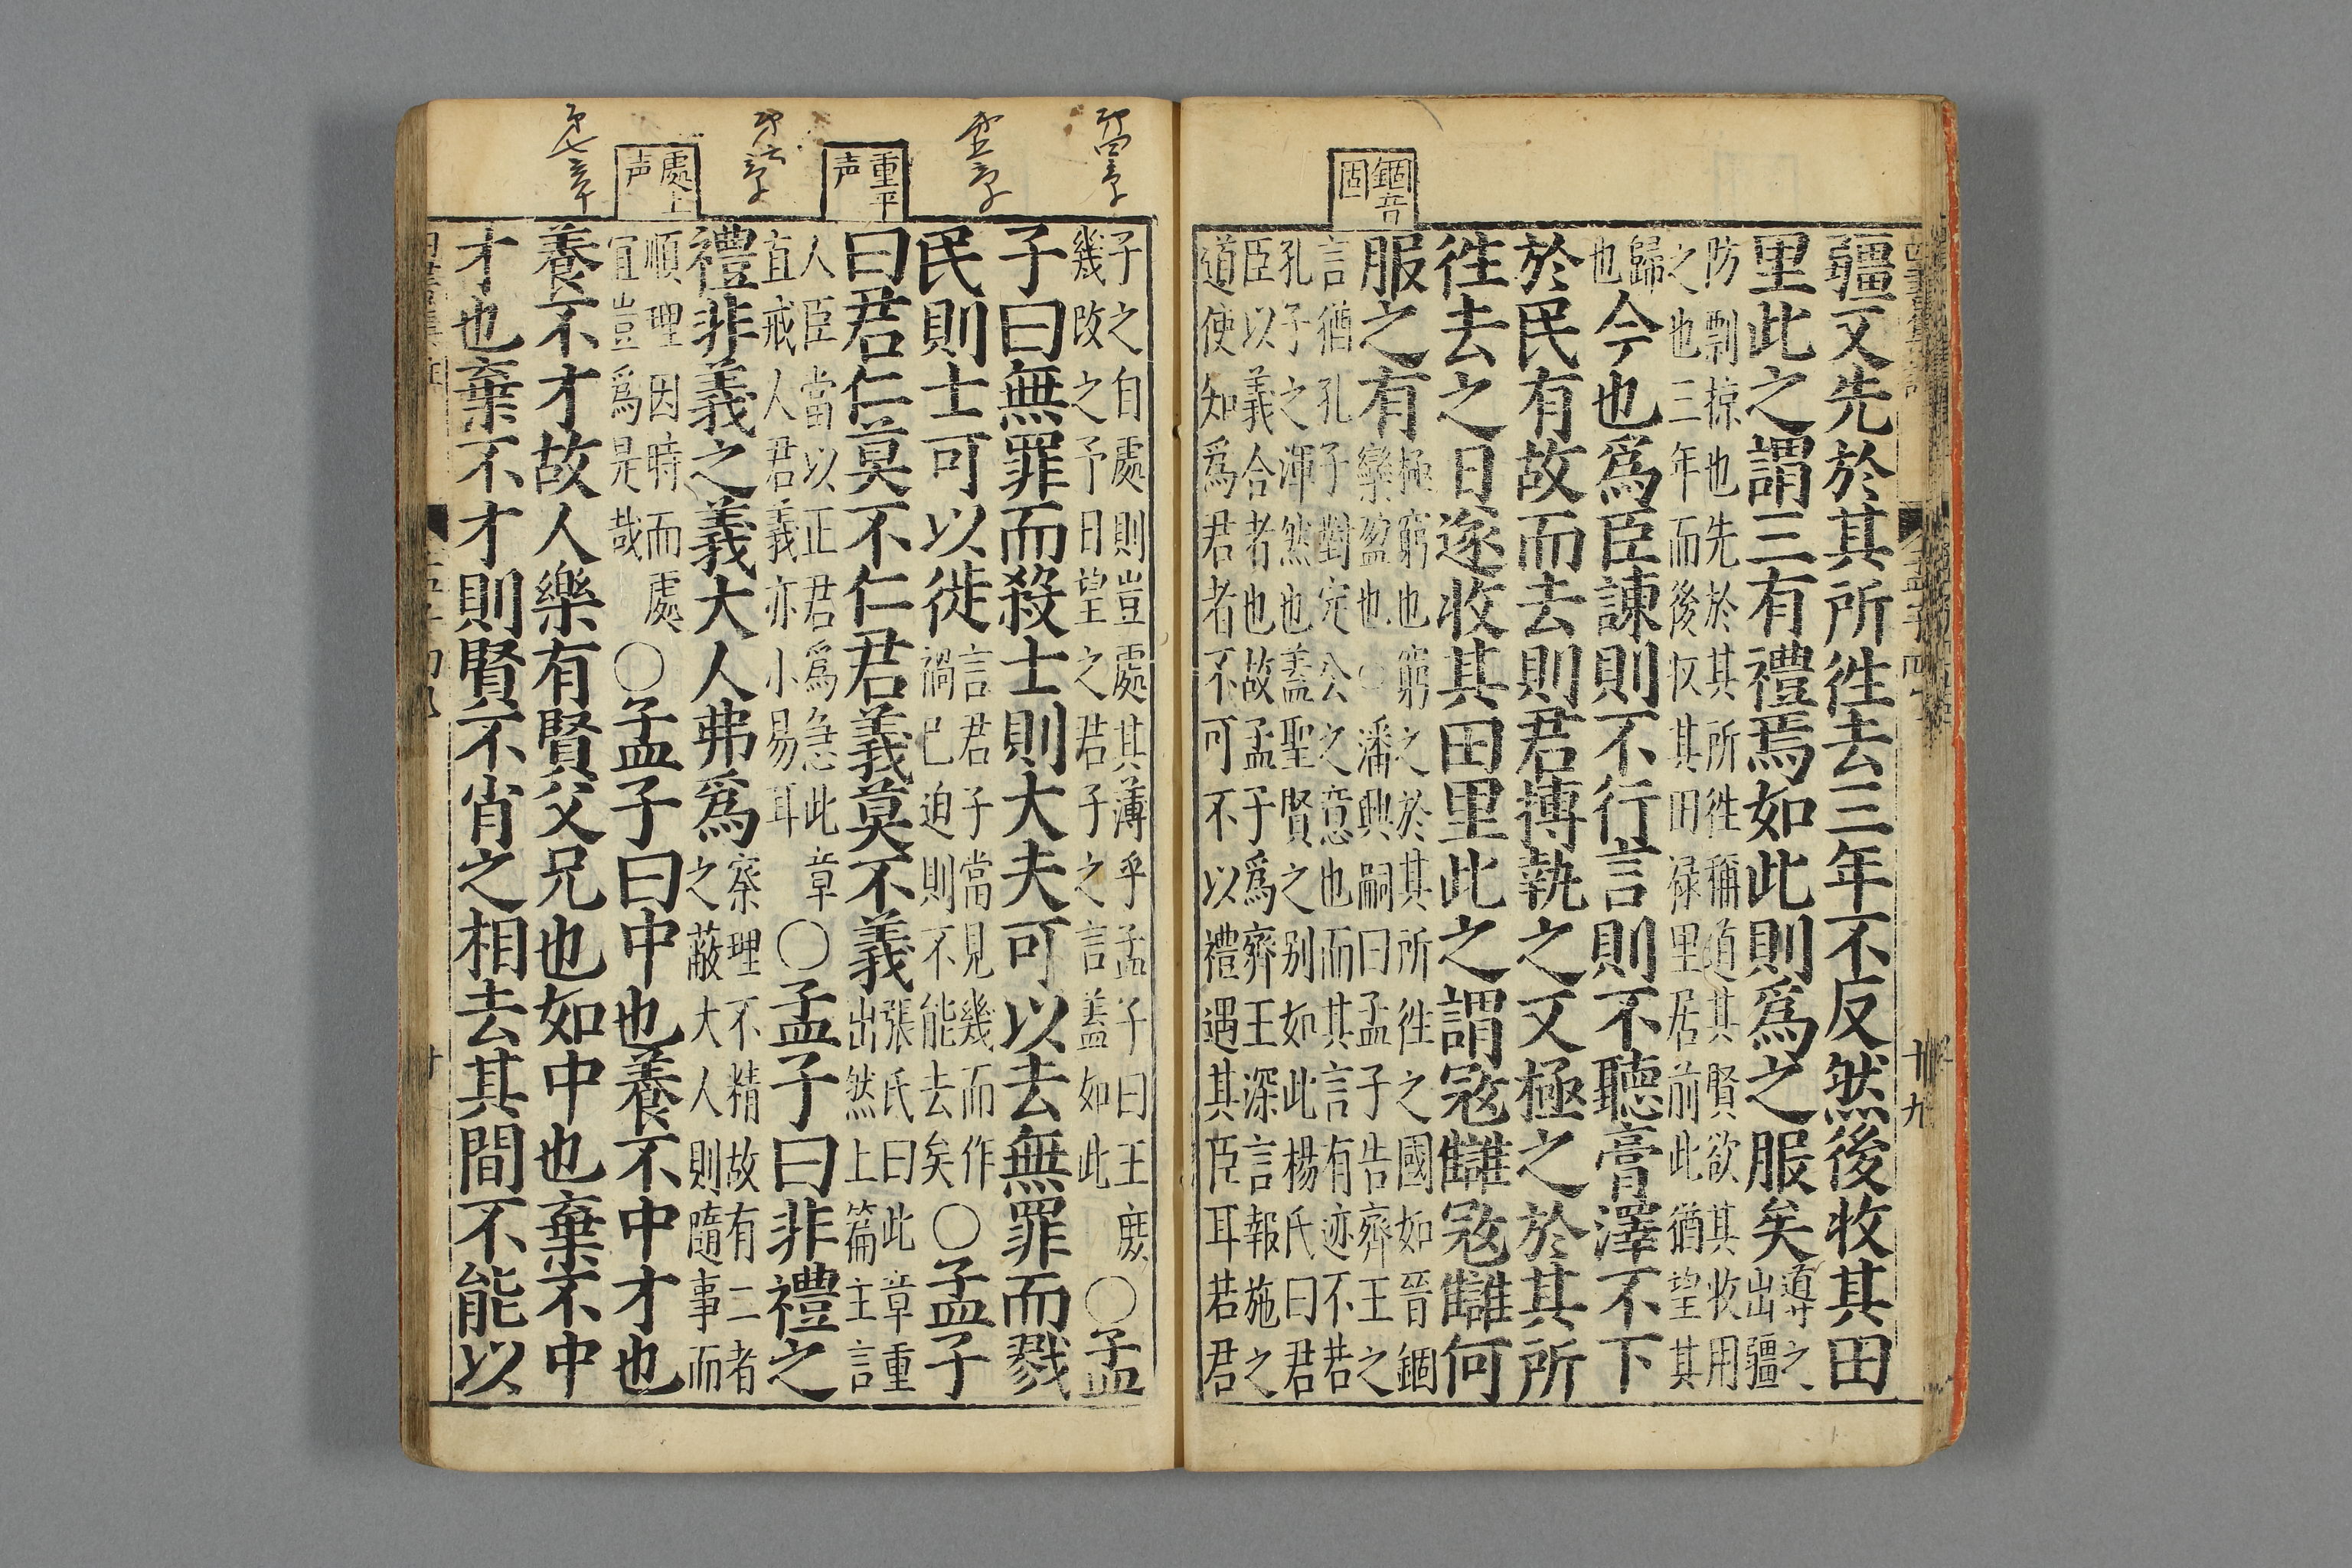 錮音
固
疆又先於其所徃去三年不反然後收其田
里此之謂三有禮焉如此則爲之服矣導之
出疆
防剽掠也先於其所徃稱道其賢欲其收用
之也三年而後收其田禄里居前此猶望其
歸
也今也爲臣諫則不行言則不聽膏澤不下
於民有故而去則君搏執之又極之於其所
徃去之日遂收其田里此之謂冦讎冦讎何
服之有極窮也窮之於其所徃之國如晉錮
欒盈也○潘興嗣曰孟子告齊王之
言猶孔子對定公之意也而其言有迹不若
孔子之渾然也盖聖賢之别如此楊氏曰君
臣以義合者也故孟子爲齊王深言報施之
道使知爲君者不可不以禮遇其臣耳若君
十九
第四章
第五章
重平
声
第六章
處上
声
第七章
子之自處則豈處其薄乎孟子曰王庶
幾改之予日望之君子之言盖如此○孟
子曰無罪而殺士則大夫可以去無罪而戮
民則士可以徙言君子當見幾而作
禍已迫則不能去矣○孟子
曰君仁莫不仁君義莫不義張氏曰此章重
出然上篇主言
人臣當以正君爲急此章
直戒人君義亦小易耳○孟子曰非禮之
禮非義之義大人弗爲察理不精故有二者
之蔽大人則隨事而
順理因時而處
宜豈爲是哉○孟子曰中也養不中才也
養不才故人樂有賢父兄也如中也棄不中
才也棄不才則賢不肖之相去其間不能以